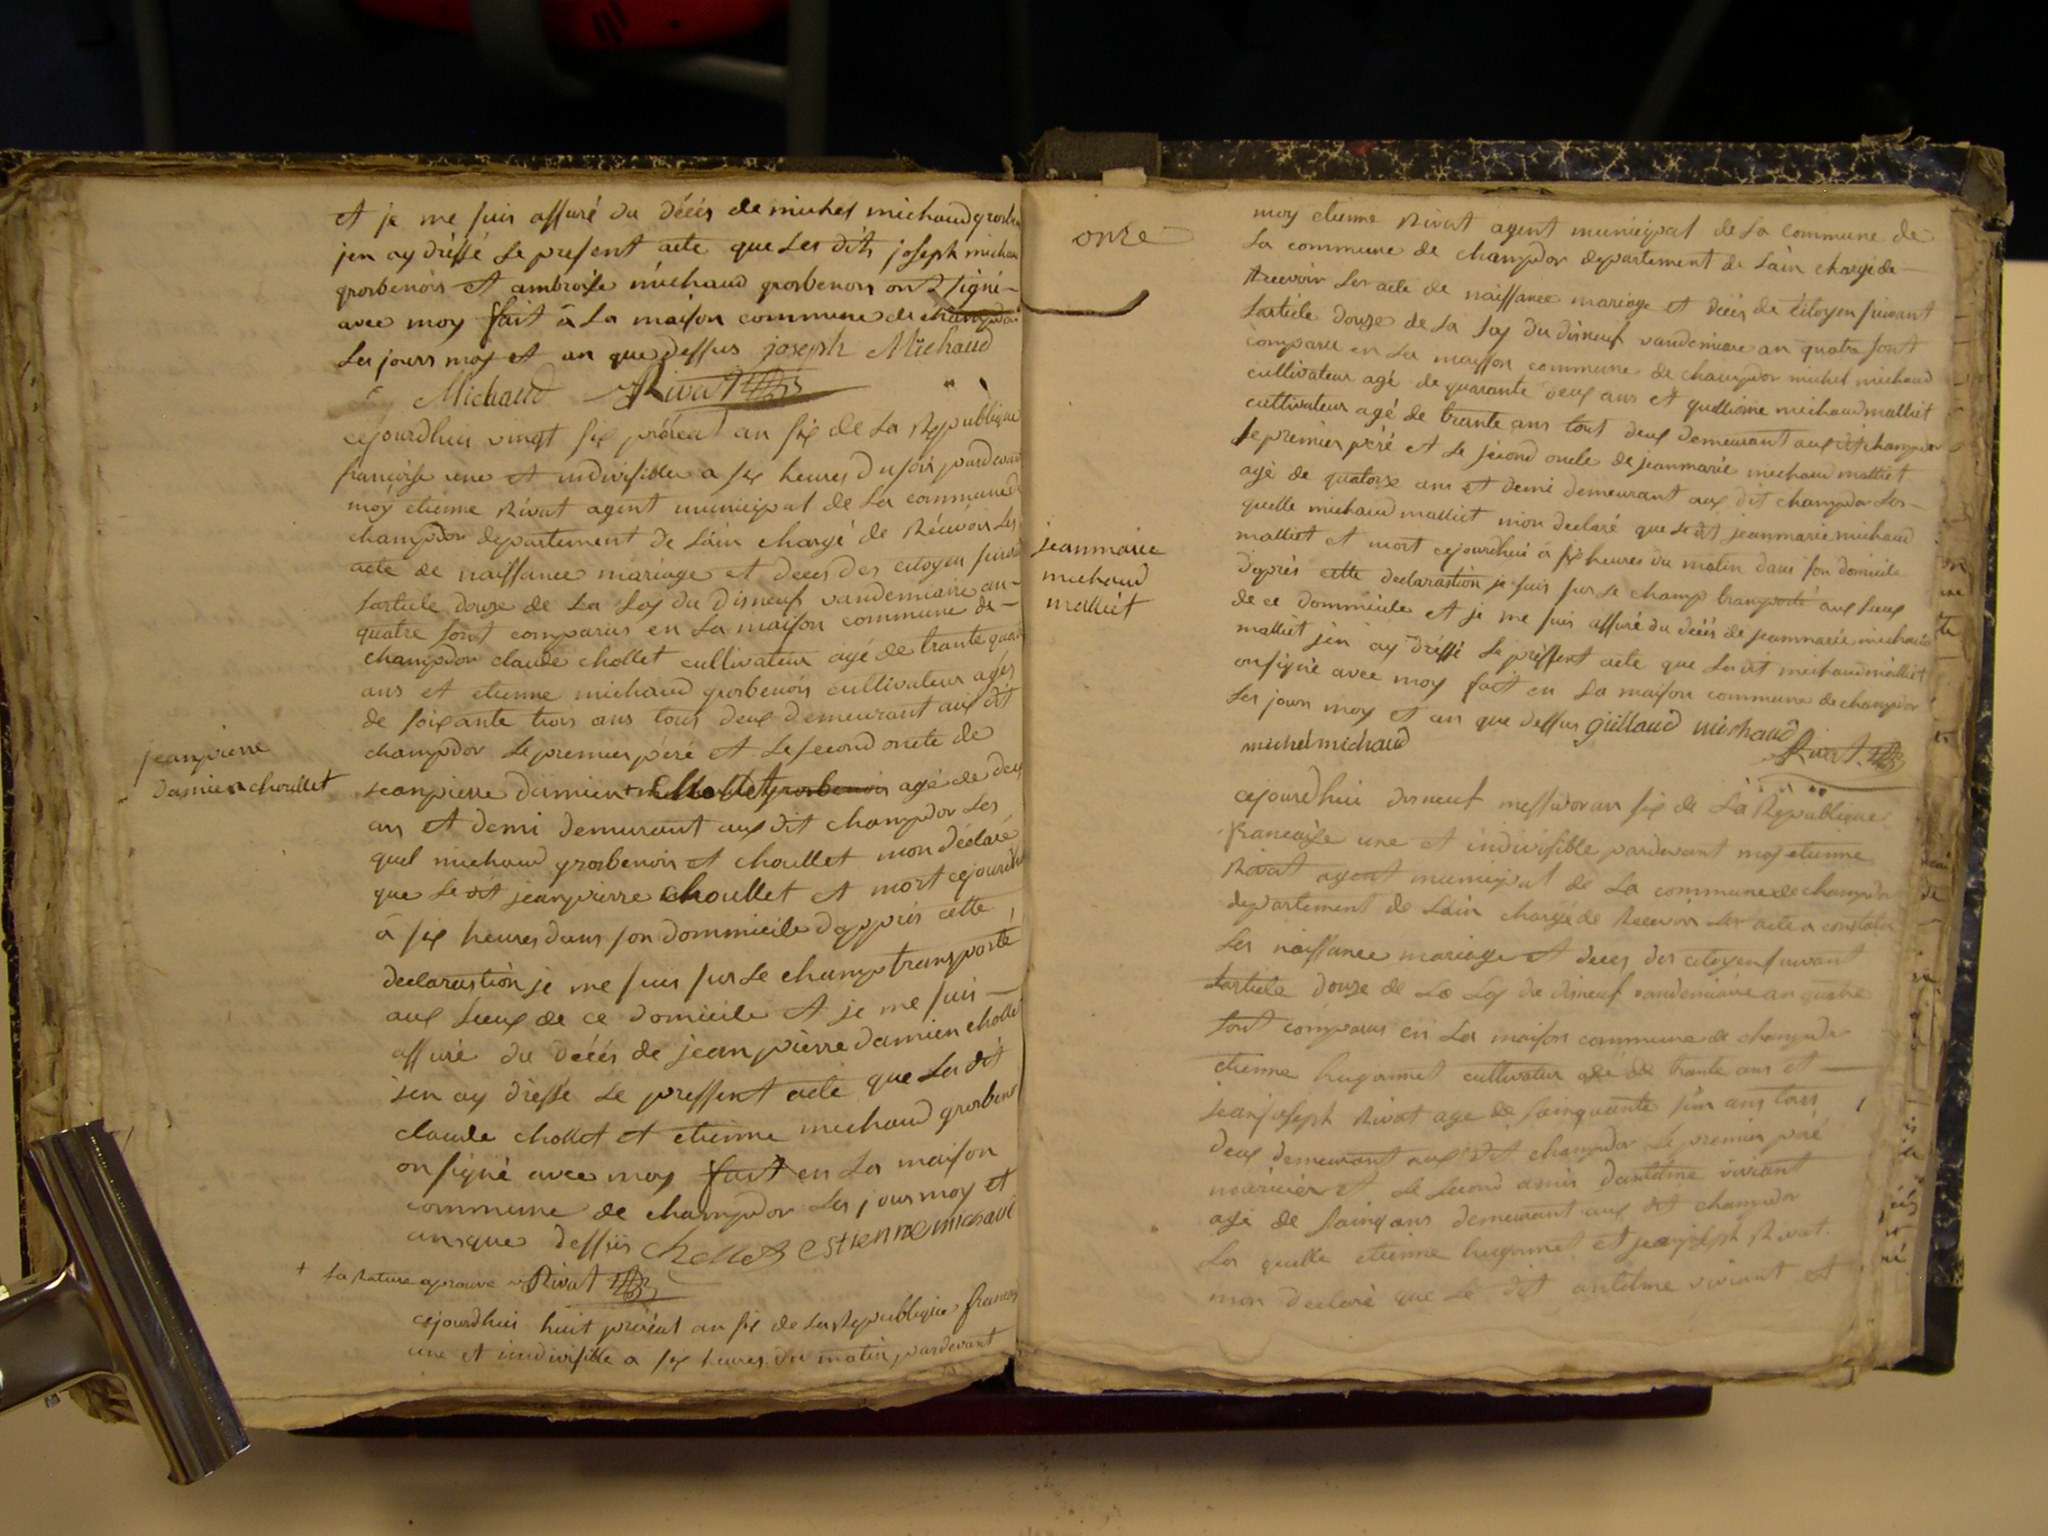 et je me suis assuré du décés de michel michaud grosbe
jen ay dréssé le present acte que les dits joseph michau
grosbenois et ambroise michaud grosbenois ont signé
avec moy fait à la maison commune de champdor
les jours moy et an que dessus joseph Michaud
Michaud Rivat
cejourdhui vingt six préreal an six de la Republique
françoise une et indivisible a six heures du soir pardevan
moy etienne Rivat agent municipal de la commune de
champdor departement de lain chargé de Récévoir les
acte de naissance mariage et deces des citoyen suiva
larticle douze de la loy du disneuf vandemiaire an
quatre sont comparus en la maison commune de
champdor claude chollet cultivateur agé de trante quat
ans et etienne michaud grosbenois cultivateur agés
de soixante trois ans tous deux demeurant aux dit
champdor le premier péré et le second oncle de
jeanpierre
damien choullet
jeanpierre damien + Chollet grosbenois agé de deux
an et demi demeurant aux dit champdor les
quel michaud grosbenois et choullet mon déclaré
que le dit jeanpierre choullet et mort cejourdh
à six heures dans son dommicile dapprés cette
declarastion je me suis sur le champ transporté
aux lieux de ce domicile et je me suis
assuré du décés de jean piérre damien chollet
jen ay dressé le pressent acte que la dit
claude chollet et etienne michaud grosbenoi
on signé avec moy fait en la maison
commune de champdor les jour moy et
an que dessus chollet estienne michaud
+ la Rature aprouvé Rivat
cejourdhui huit préréal an six de la Republique frances
une et indivisible a six heures du matin pardevant
onze
moy etienne Rivat agent municipal de la commune de
la commune de champdor departement de lain chargé de
Recevoir les acte de naissance mariage et décés de citoyen suivant
larticle douze de la loy du disneuf vandemiaire an quatre sont
comparu en la maison commune de champdor michel michaud
cultivateur agé de quarante deux ans et guilliaume michaud malliet
cultivateur agé de trante ans tout deux demeurant aux dit champdor
le premier péré et le second oncle de jeanmarie michaud malliet
agé de quatorze ans et demi demeurant aux dit champdor les
quelle michaud malliet mon declaré que le dit jeanmarie michaud
jeanmarie
michaud
malliet
malliet et mort cejourdhui à six heures du matin dans son domicile
dapprés cette declarastion je suis sur le champ transporté aux lieux
de ce dommicile et je me suis assuré du décés de jeanmarie michaud
malliet jen ay dréssé le préssent acte que la dit michaud malliet
on signé avec moy fait en la maison commune de champdor
les jours moy et an que dessus guillaud michaud
michel michaud Rivat
cejourdhui disneuf messidor an six de la Republique
francaise une et indivisible pardevant moy etienne
Rivat agent municipal de la commune de champdor
departement de lain chargé de Recevoir les acte a constater
les naissance mariage et deces des citoyen suivant
larticle douze de la loy du disneuf vandemiaire an quatre
sont comparus en la maison commune de champdor
etienne hugonnet cultivateur agé de trante ans et
jean joseph Rivat agé de sainquante sin ans tous
deux demeurant aux dit champdor le premier péré
nouricier et le second amis dantelme viviant
agé de sainq ans demeurant aux dit champdor
les quelle etienne hugonnet et jean joseph Rivat
mon declaré que le dit antelme viviant et